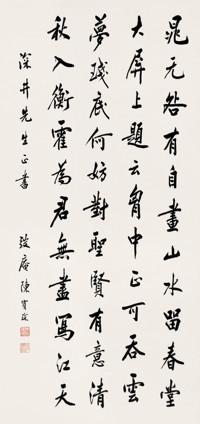 晁无咎有自畫山水留春堂
大屏上題云胸中正可吞雲
夢琖底何妨對聖賢有意清
秋入衡霍為君無盡寫江天
深井先生正書
弢庵陳寶琛